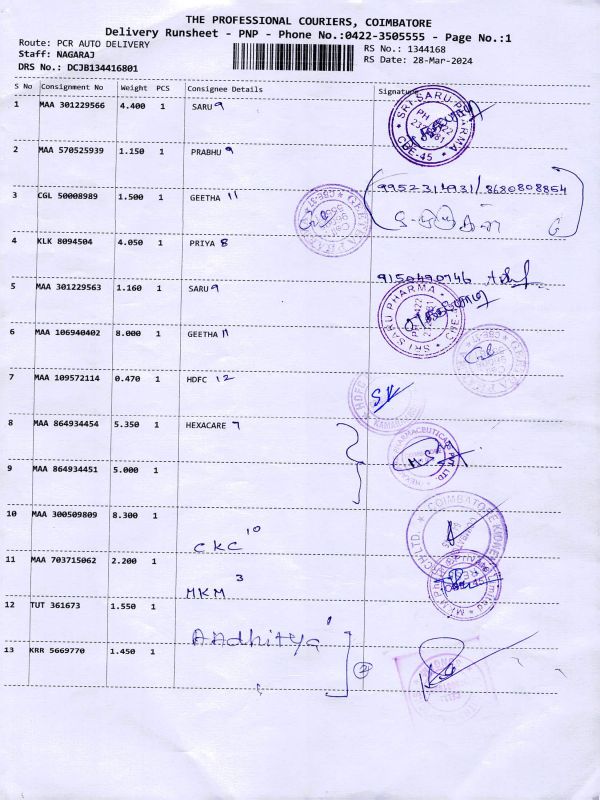 THE PROFESSIONAL COURIERS, COIMBATORE
Delivery Runsheet - PNP - Phone No.:0422-3505555 - Page No.:1
Route: PCR AUTO DELIVERY
RS No.: 1344168
Staff: NAGARAJ
RS Date: 28-Mar-2024
DRS No.: DCJB134416801
S No Consignment No Weight PCS Consignee Details Signature
1 MAA 301229566 4.400 1 SARU 9
SRI SARU PHARMA CBE-45
2 MAA 570525939 1.150 1 PRABHU 9
9952314931/8680808854
3 CGL 50008989 1.500 1 GEETHA 11
4 KLK 8094504 4.050 1 PRIYA 8
9150490746
5 MAA 301229563 1.160 1 SARU 9
SRI SARU PHARMA
6 MAA 106940402 8.000 1 GEETHA 11
7 MAA 109572114 0.470 1 HDFC 12
HDFC
8 MAA 864934454 5.350 1 HEXACARE 7
9 MAA 864934451 5.000 1
10 MAA 300509809 8.300 1 CKC 10
COIMBATORE KIDNEY
11 MAA 703715062 2.200 1 MKM 3
12 TUT 361673 1.550 1 AAdhitya
13 KRR 5669770 1.450 1
2